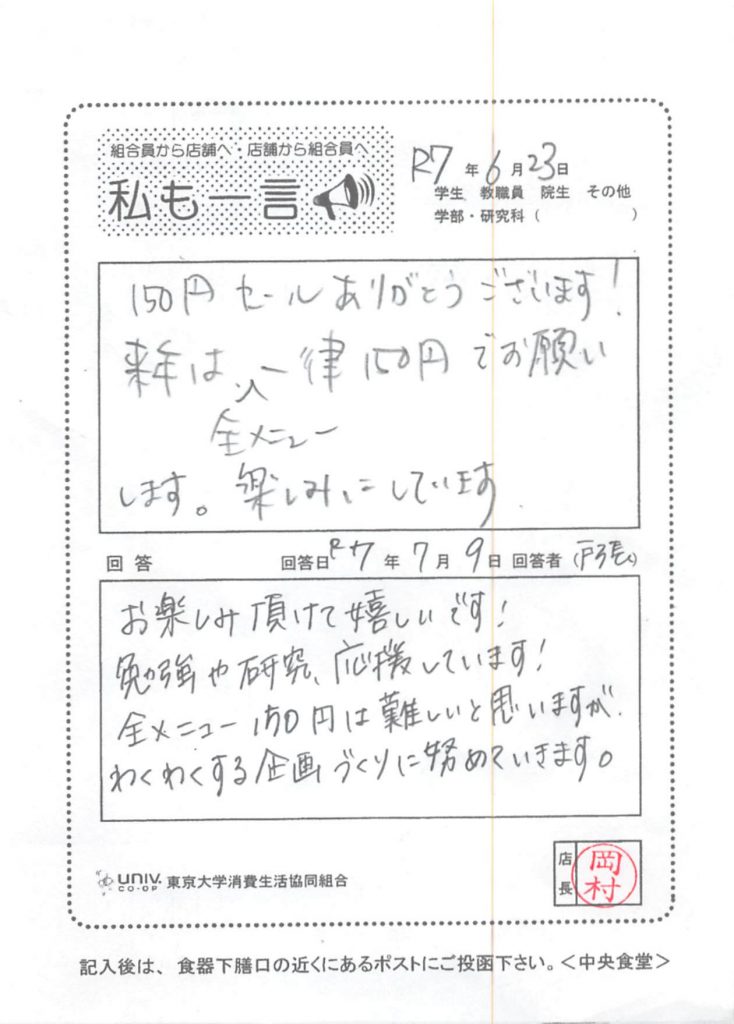 組合員から店舗へ・店舗から組合員へ
私も一言
R7年6月23日
学生 教職員 院生 その他
学部・研究科（ ）
150円セールありがとうございます!
来年は 一律150円でお願い
全メニュー
します。楽しみにしています
回答 回答日R7年7月9日 回答者（戸張）
お楽しみ頂けて嬉しいです!
勉強や研究、応援しています!
全メニュー150円は難しいと思いますが、
わくわくする企画づくりに努めていきます。
UNIV. CO-OP 東京大学消費生活協同組合
店長 岡村
記入後は、食器下膳口の近くにあるポストにご投函下さい。＜中央食堂＞